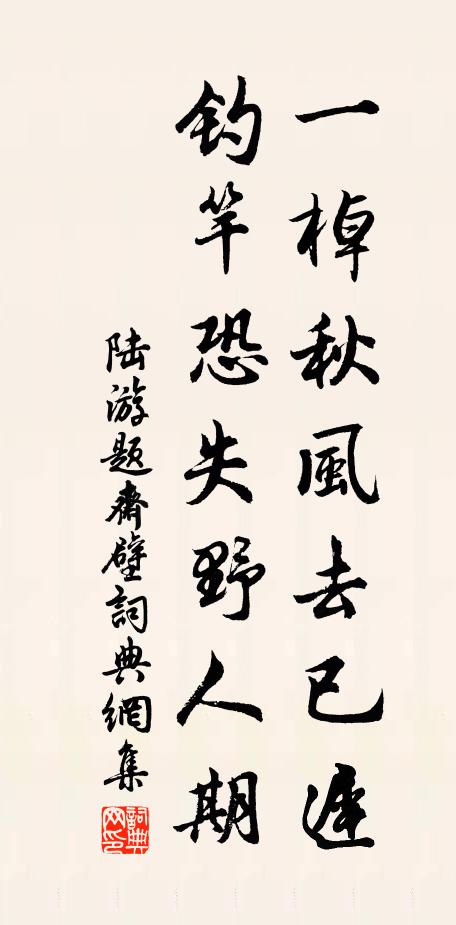 一棹秋風去已遲
釣竿恐失野人期
陆游题齋壁詞典網集
詞典網印